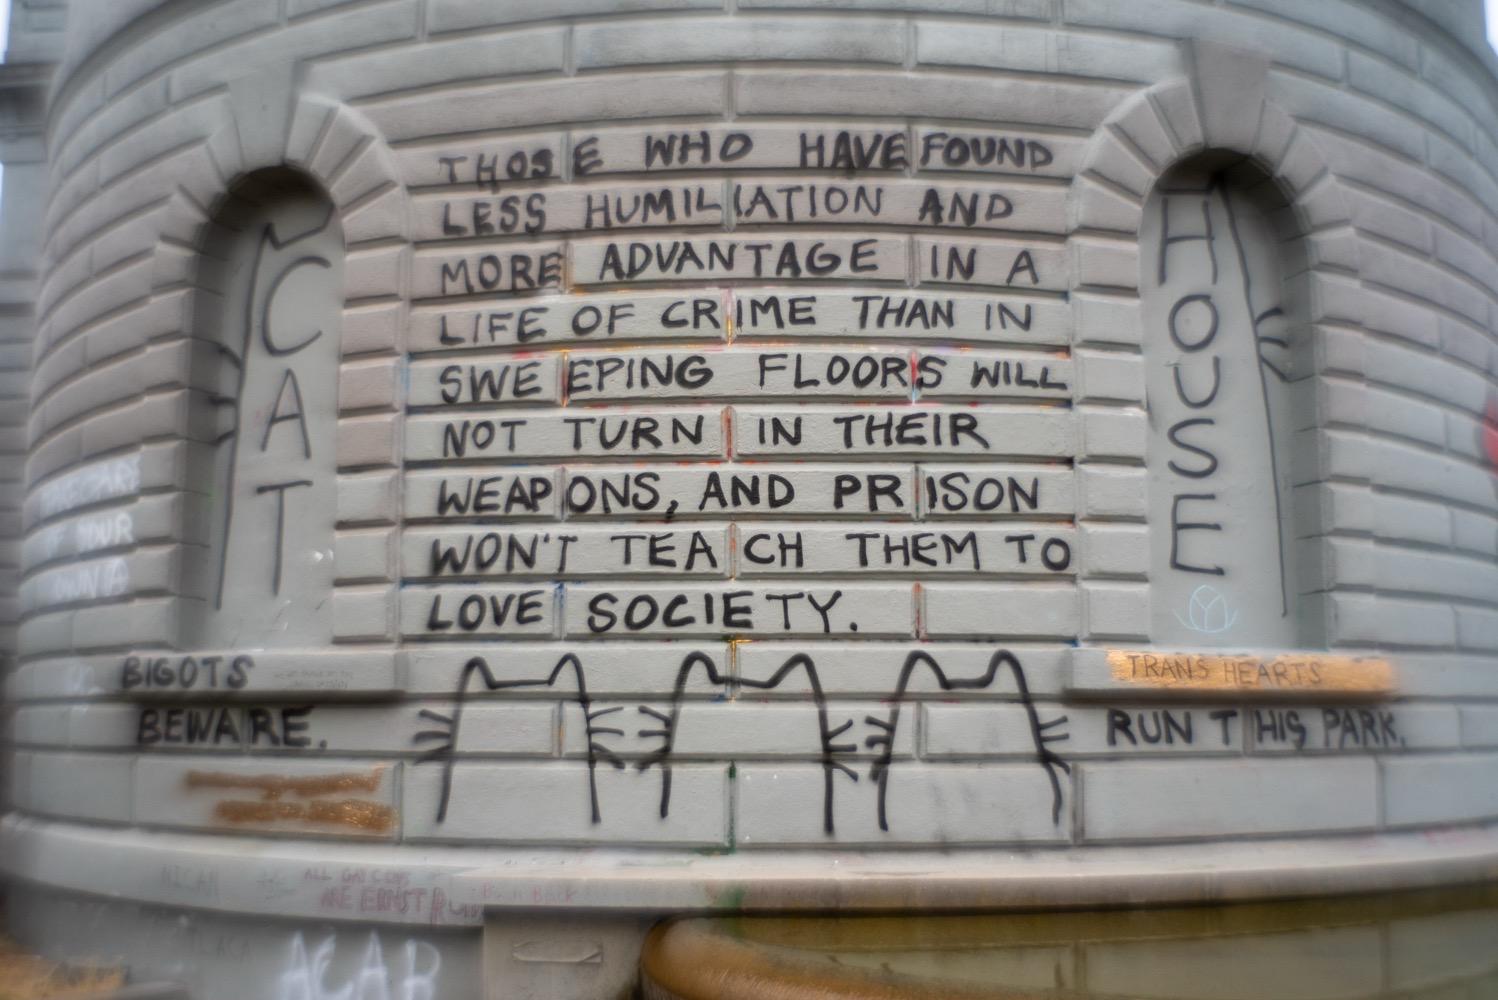 THOSE WHO HAVE FOUND
LESS HUMILIATION AND
MORE ADVANTAGE IN A
LIFE OF CRIME THAN IN
SWEEPING FLOORS WILL
NOT TURN IN THEIR
WEAPONS, AND PRISON
WON'T TEACH THEM TO
LOVE SOCIETY.
CAT
HOUSE
BIGOTS
BEWARE.
TRANS HEARTS
RUN THIS PARK.
OF YOUR
ALL GAY COPS
ARE ERNST
ACAB